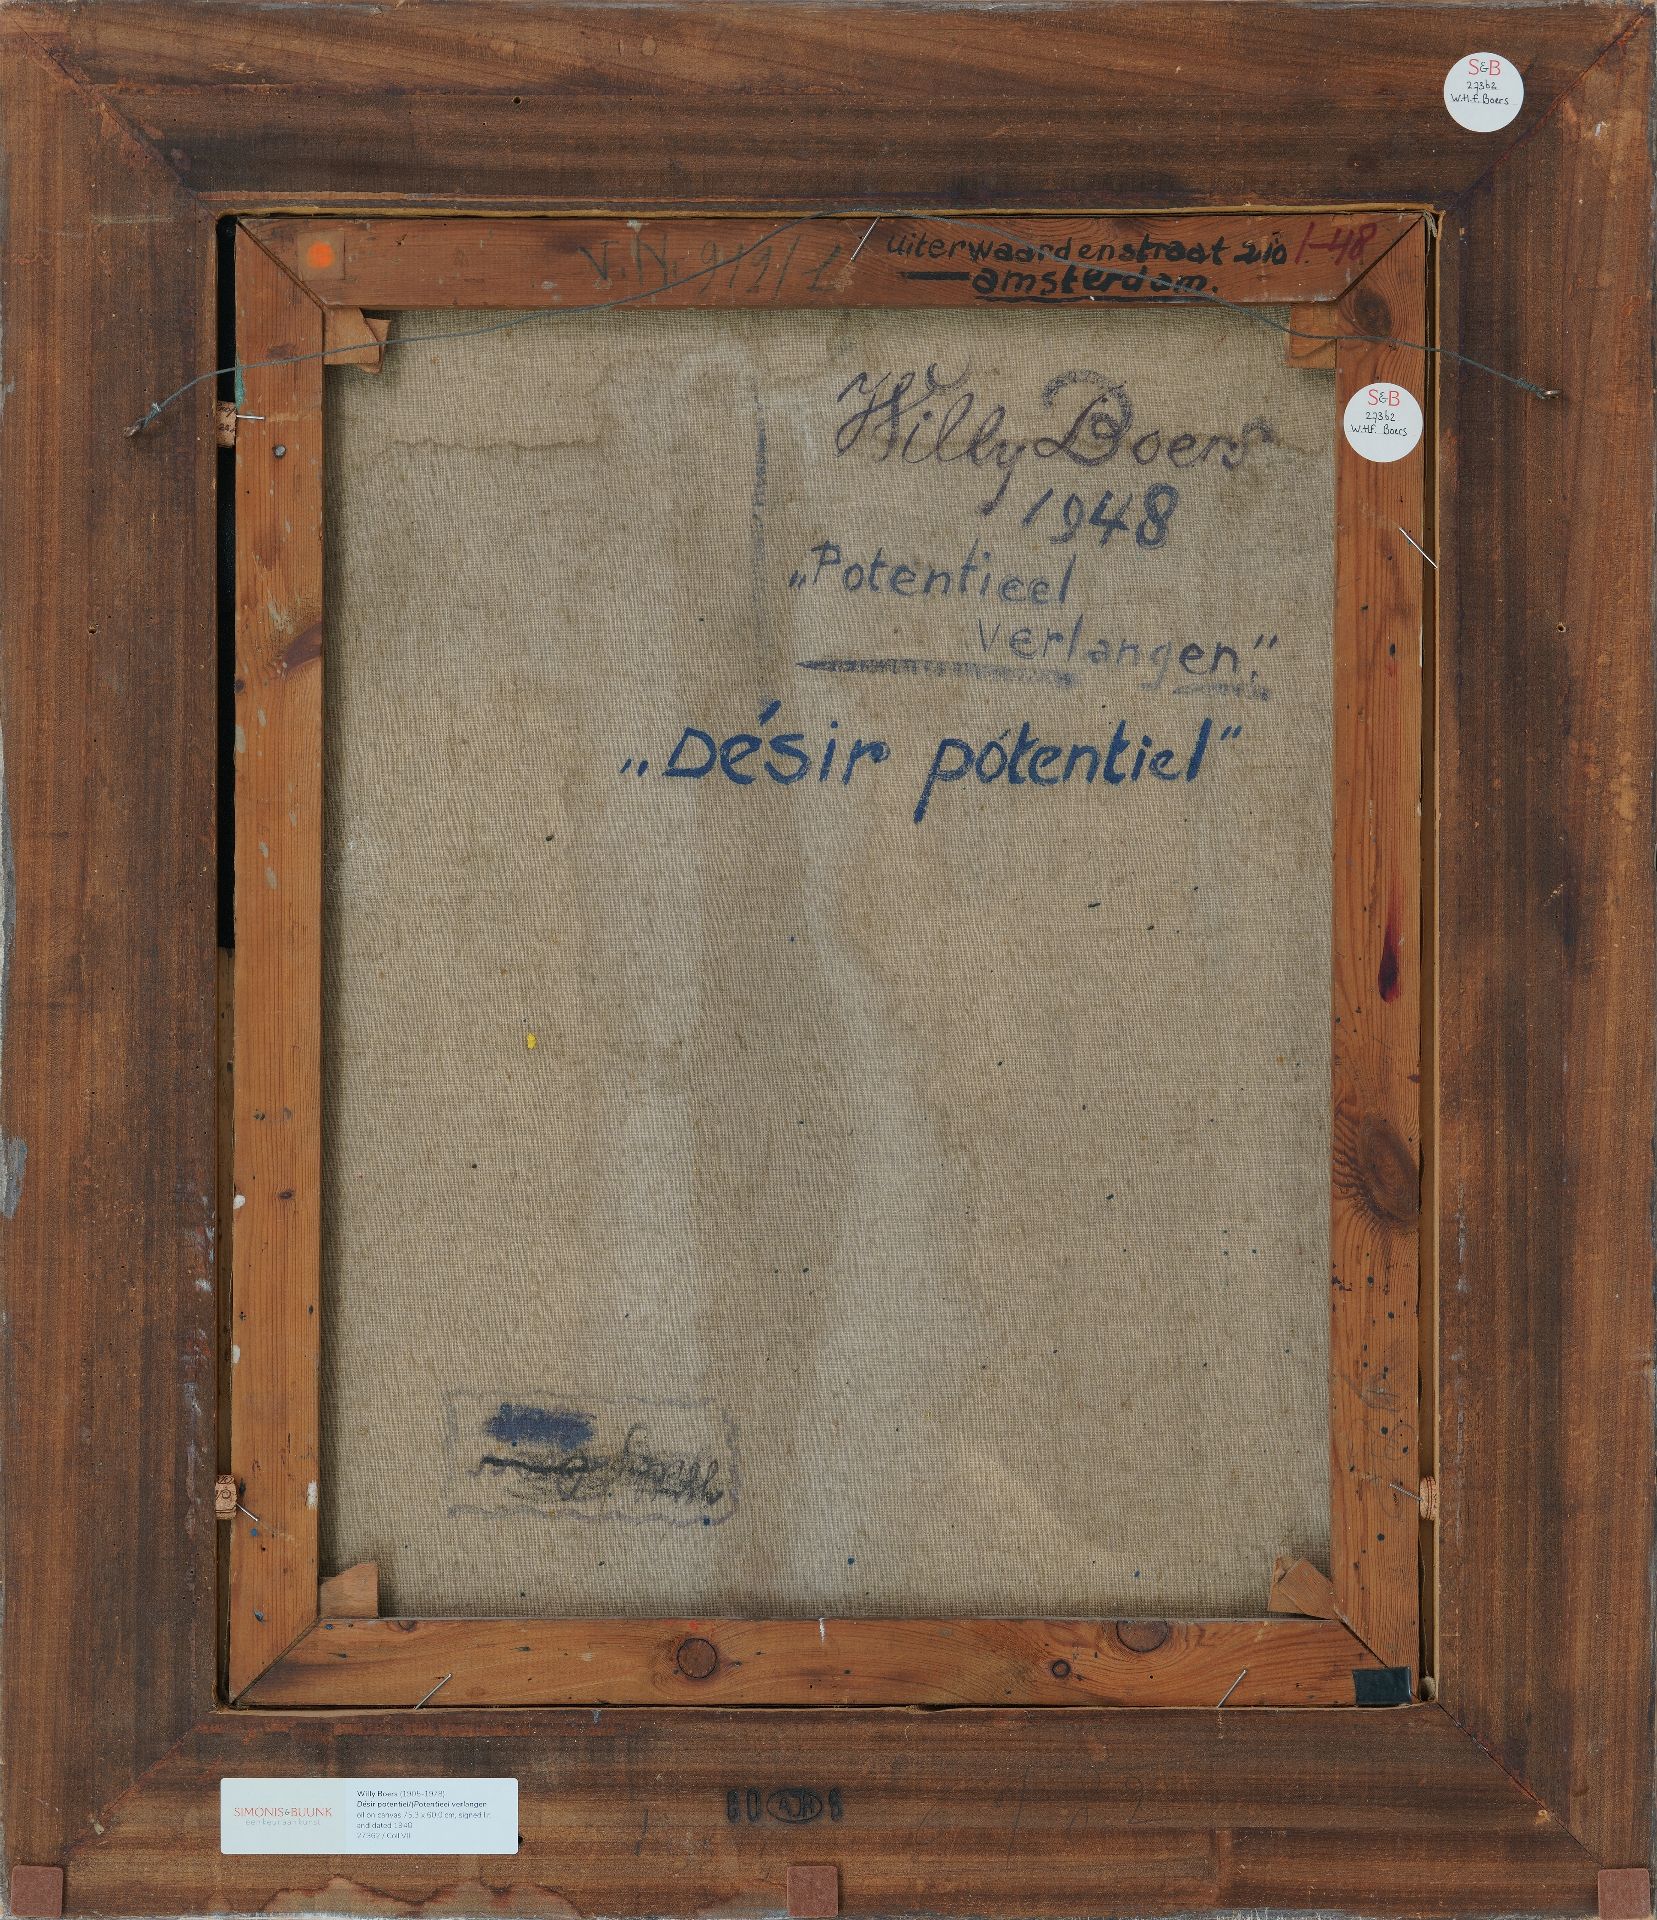 S&B
27362
W.H.F. Boers
V.N. 9/2/1
uiterwaardenstraat 210 1-48
amsterdam.
S&B
27362
W.H.F. Boers
Willy Boers
1948
„Potentieel
verlangen."
„Désir pótentiel"
SIMONIS&BUUNK
een keur aan kunst
Willy Boers (1905-1978)
Désir potentiel/(Potentieel verlangen
oil on canvas 75.3 x 60.0 cm, signed l.r.
and dated 1948
27362 / Coll VII